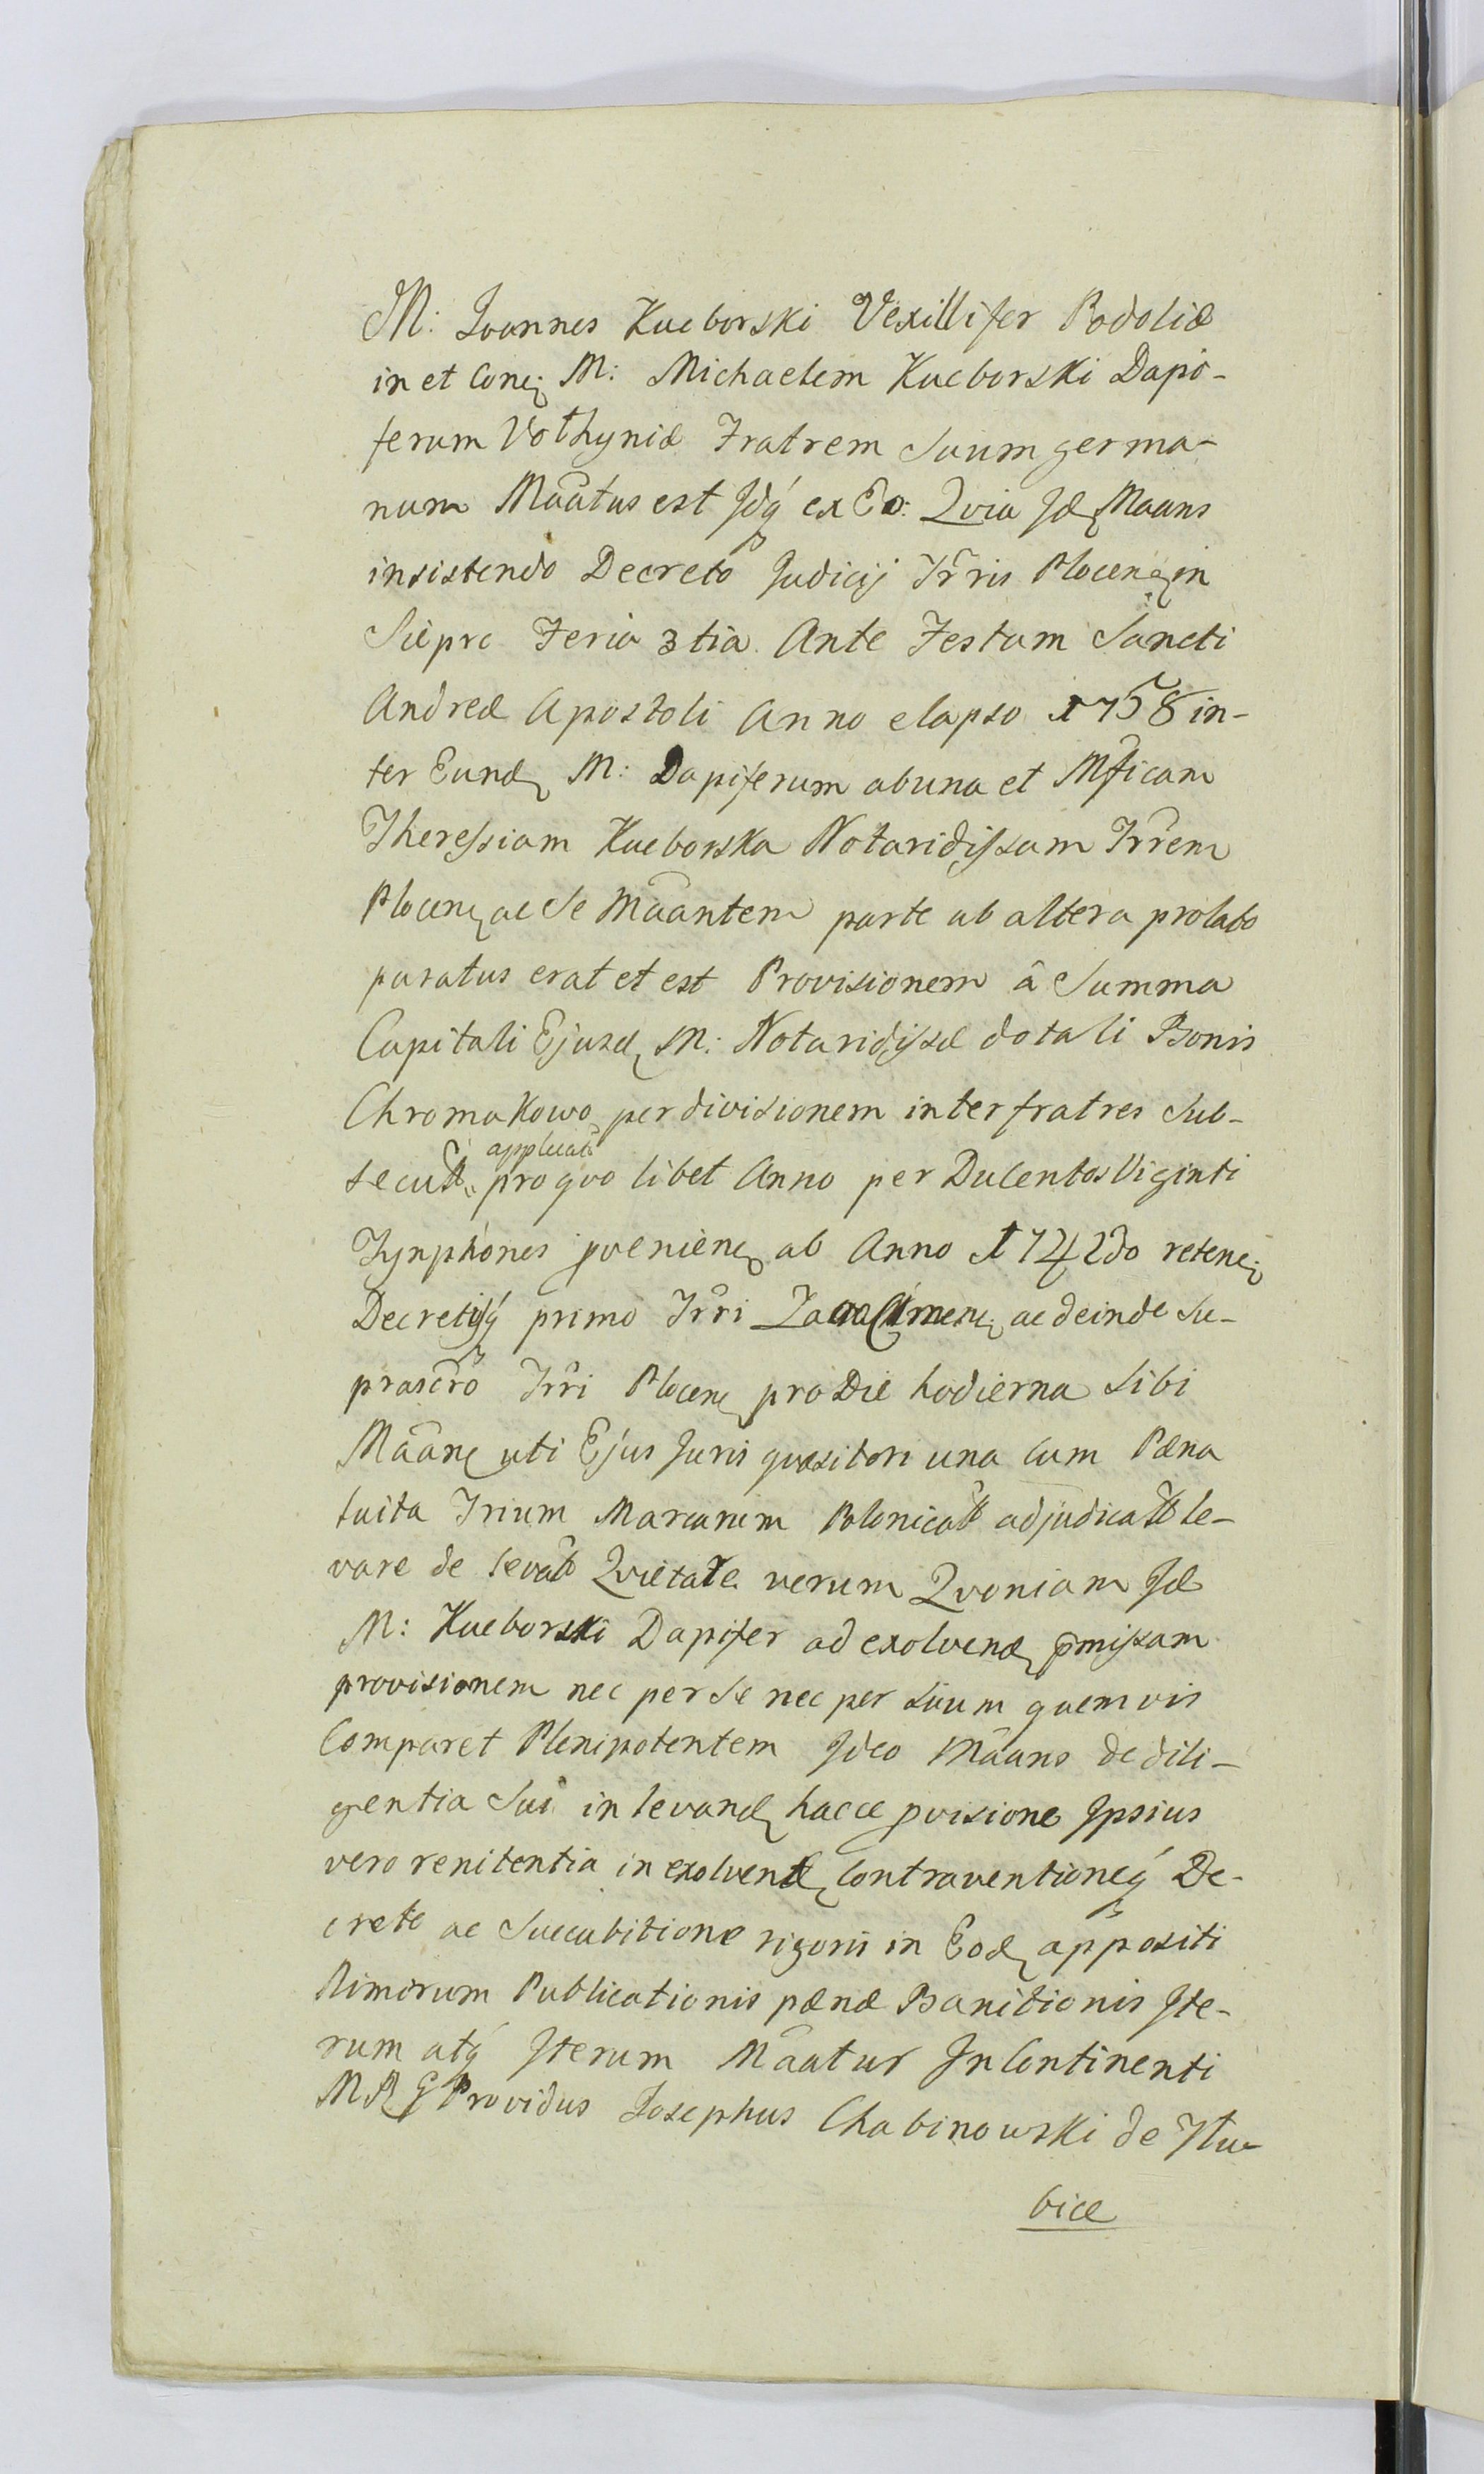 M: Joannes Kucborski Vexillifer Podoliæ
in et Conc; M: Michaelem Kucborski Dapi-
ferum Vołhyniæ Fratrem Suum germa-
num Māātus est Jdq́ ex Eo: Qvia Jd Maans
insistendo Decreto Judicij Trris Plocen in
Sieprc Feria 3tia Ante Festum Sancti
Andreæ Apostoli Anno elapso 1758 in-
ter Eund M: Dapiferum ab una et Mficam
Theressiam Kucborska Notaridissam Trrem
Plocen ac Se Māāntem parte ab altera prolato
paratus erat et est Provisionem â Summa
Capitali Ejusd M: Notaridissæ dotali Bonis
Chromakowo per divisionem inter fratres Sub-
secut applicata
pro qvo libet Anno per Ducentos Viginti
Tynphónes pvenien ab Anno 1742do reten
Decretisq́ primo Trri ac deinde Su-
prascro Trri Plocen pro Die hodierna Sibi
Māān uti Ejus Juris qvæsitori una Cum Pæna
luita Trium Marcarum Polonica adjudica le-
vare de levat Qvietare verum Qvoniam Jd
M: Kucborski Dapifer ad exolvend pmissam
provisionem nec per Se nec per Suum quemvis
Comparet Plenipotentem Jdeo Māans de dili-
gentia Sui in levand hacce pvisione Jpsius
vero renitentia in exolvend Contraventioneq́ De-
creto ac Succubitione rigoris in Eod appositi
Rimorum Publicationis pænæ Banitionis Jte-
rum atq́ Jterum Māatur Jn Continenti
M R G Providus Josephus Chabinowski de Tłu-
bice